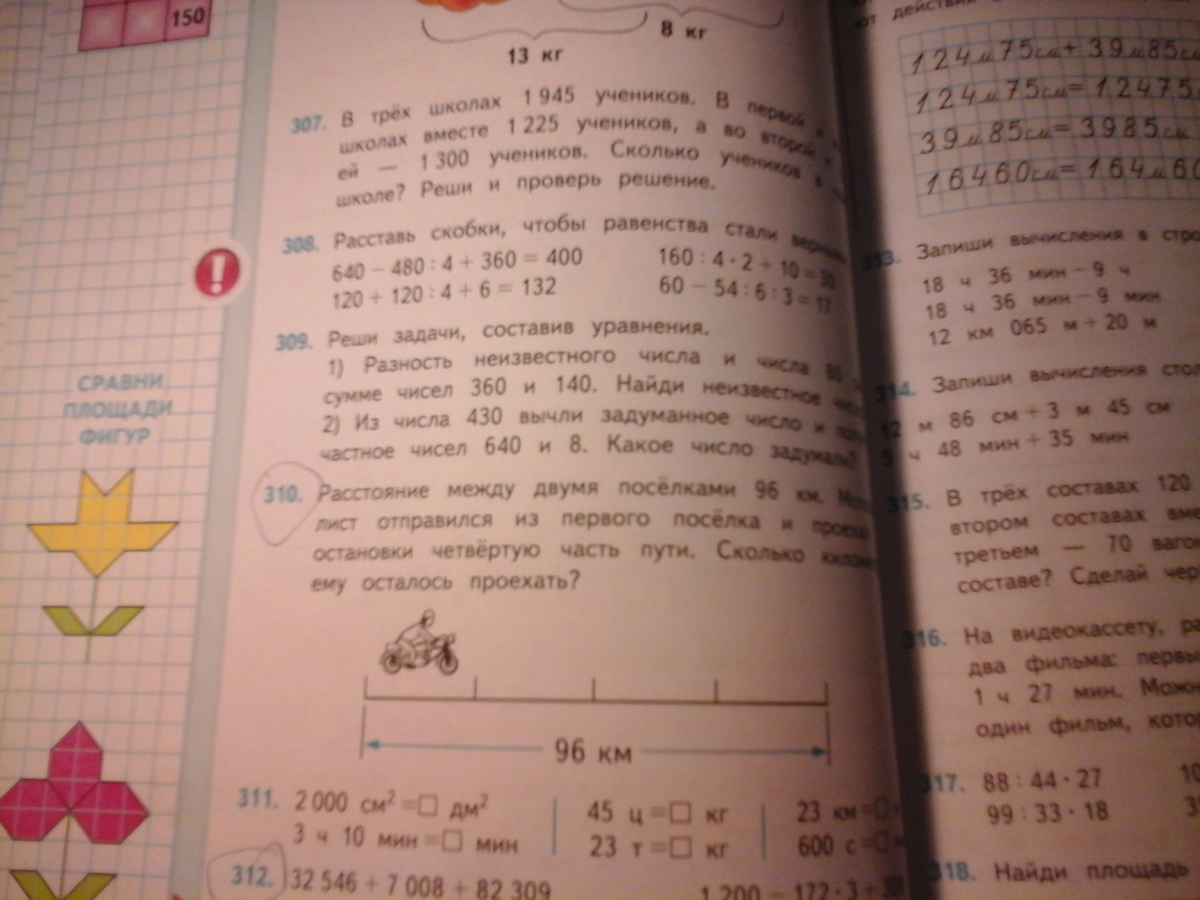 150
13 кг
8 кг
307. В трёх школах 1 945 учеников. В первой и
школах вместе 1 225 учеников, а во второй и
ей — 1 300 учеников. Сколько учеников в
школе? Реши и проверь решение.
308. Расставь скобки, чтобы равенства стали
640 − 480 : 4 + 360 = 400
160 : 4 · 2 + 10 = 30
120 + 120 : 4 + 6 = 132
60 − 54 : 6 : 3 = 17
309. Реши задачи, составив уравнения.
1) Разность неизвестного числа и числа 80
сумме чисел 360 и 140. Найди неизвестное
2) Из числа 430 вычли задуманное число и
частное чисел 640 и 8. Какое число задумали?
СРАВНИ
ПЛОЩАДИ
ФИГУР
310. Расстояние между двумя посёлками 96 км.
лист отправился из первого посёлка и
остановки четвёртую часть пути. Сколько
ему осталось проехать?
96 км
311. 2 000 см² = □ дм²
45 ц = □ кг
23 км = □
3 ч 10 мин = □ мин
23 т = □ кг
600 с = □
312. 32 546 + 7 008 + 82 309
1 200 − 172 · 3 +
ют действия
124 м 75 см + 39 м 85 см
124 м 75 см = 12475
39 м 85 см = 3985 см
16460 см = 164 м 60
313. Запиши вычисления в
18 ч 36 мин − 9 ч
18 ч 36 мин − 9 мин
12 км 065 м + 20 м
314. Запиши вычисления
12 м 86 см + 3 м 45 см
5 ч 48 мин + 35 мин
315. В трёх составах 120
втором составах
третьем — 70
составе? Сделай
316. На видеокассету,
два фильма:
1 ч 27 мин.
один фильм,
317. 88 : 44 · 27
99 : 33 · 18
318. Найди площадь